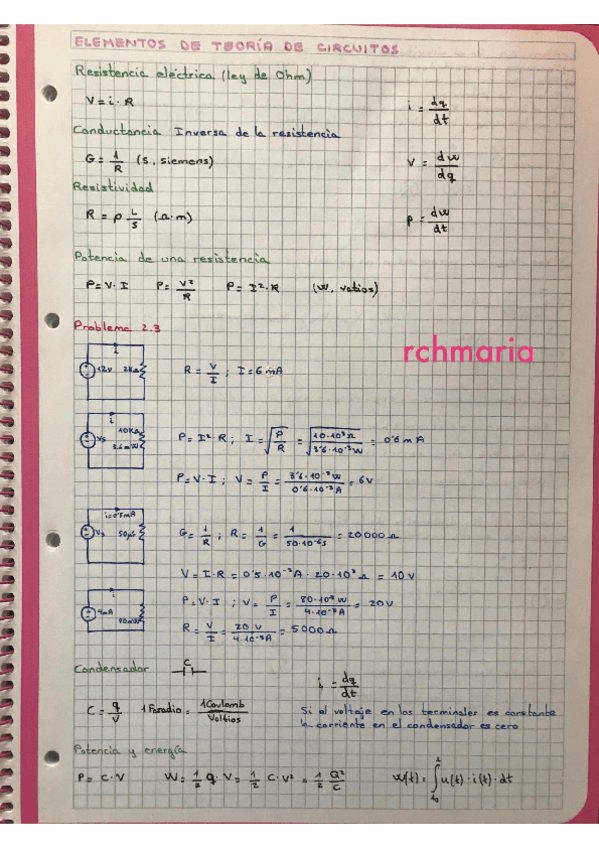 ELEMENTOS DE TEORÍA DE CIRCUITOS
Resistencia eléctrica (ley de Ohm)
V = i · R
i = dq/dt
Conductancia Inversa de la resistencia
G = 1/R (s, siemens)
V = dw/dq
Resistividad
R = ρ L/S (Ω·m)
P = dw/dt
Potencia de una resistencia
P = V · I P = V²/R P = I² · R (W, vatios)
Problema 2.3
rchmaria
i
12V 2KΩ
R = V/I ; I = 6 mA
i
10KΩ
Vs
3.6mW
P = I² · R ; I = √(P/R) = √(10·10³Ω / 3'6·10⁻³W) = 0'6 mA
P = V · I ; V = P/I = 3'6·10⁻³W / 0'6·10⁻³A = 6V
i=0'5mA
Vs 50μS
G = 1/R ; R = 1/G = 1/50·10⁻⁶s = 20000 Ω
V = I · R = 0'5·10⁻³A · 20·10³ Ω = 10V
4mA
80mW
P = V · I ; V = P/I = 80·10³W / 4·10⁻³A = 20V
R = V/I = 20V / 4·10⁻³A = 5000 Ω
Condensador C
i = dq/dt
C = q/V 1 Faradio = 1 Coulomb/Voltios
Si el voltaje en los terminales es constante
la corriente en el condensador es cero
Potencia y energía
P = C · V W = 1/2 q · V = 1/2 C · V² = 1/2 Q²/C w(t) = ∫ u(t) · i(t) · dt